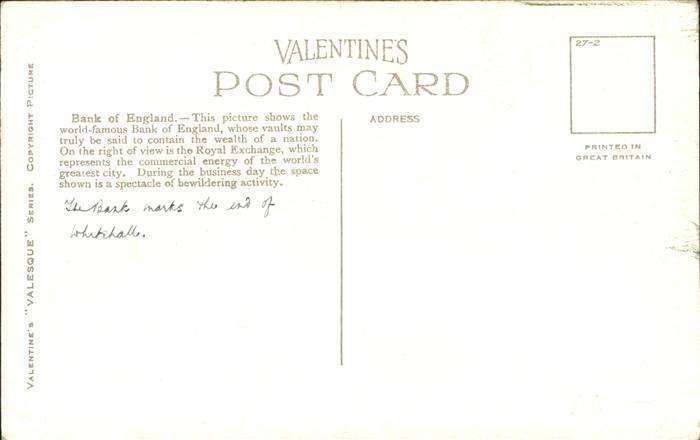 VALENTINE'S
POST CARD
27-2
PRINTED IN
GREAT BRITAIN
ADDRESS
Bank of England.—This picture shows the
world-famous Bank of England, whose vaults may
truly be said to contain the wealth of a nation.
On the right of view is the Royal Exchange, which
represents the commercial energy of the world's
greatest city. During the business day the space
shown is a spectacle of bewildering activity.
The Bank marks the end of
Whitehall.
VALENTINE'S "VALESQUE" SERIES. COPYRIGHT PICTURE